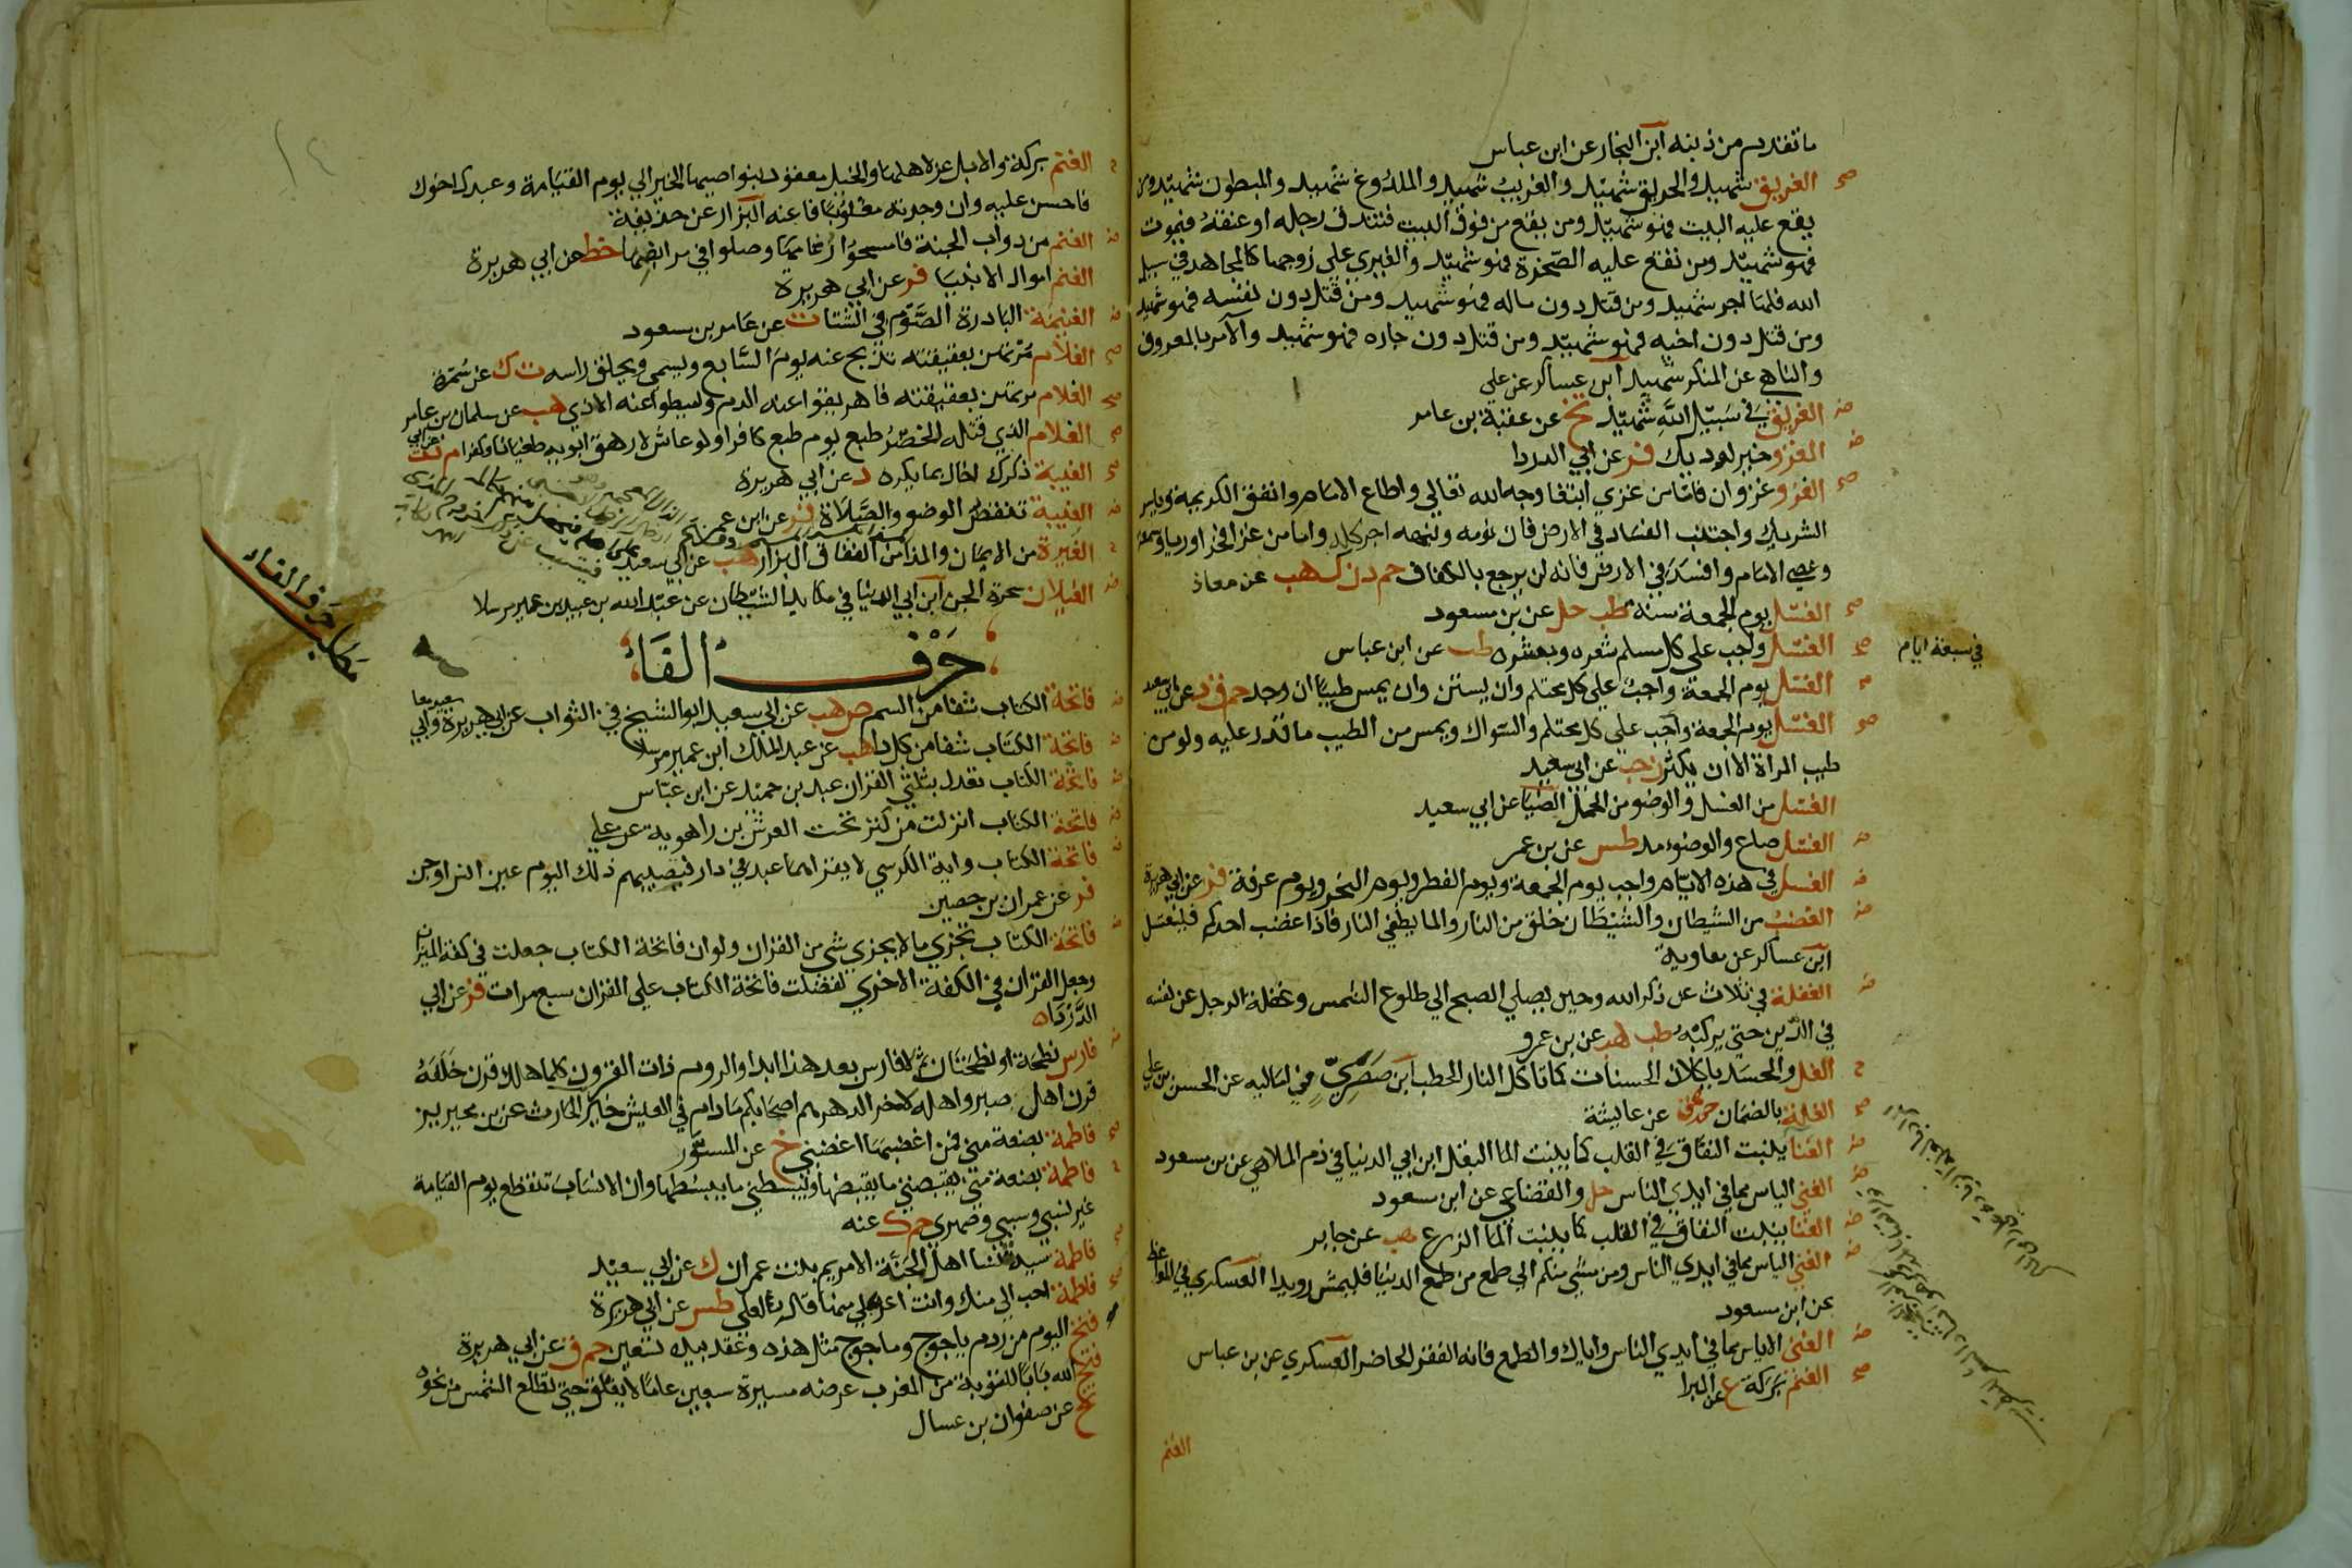 ما تقدم من ذنبه ابن النجار عن ابن عباس
صح الغريق شهيد والحريق شهيد والغريب شهيد والملدوغ شهيد والمبطون شهيد ومن
يقع عليه البيت فهو شهيد ومن يقع من فوق البيت فتندق رجله او عنقه فيموت
فهو شهيد ومن تقع عليه الصخرة فهو شهيد والغيري علي زوجها كالمجاهد في سبيل
الله فلها اجر شهيد ومن قتل دون ماله فهو شهيد ومن قتل دون نفسه فهو شهيد
ومن قتل دون اخيه فهو شهيد ومن قتل دون جاره فهو شهيد والآمر بالمعروف
والناهي عن المنكر شهيد ابن عساكر عن علي
الغريق في سبيل الله شهيد تخ عن عقبة بن عامر
الغزو خير لوديك فر عن ابي الدردا
صح الغزو غزوان فاما من غزي ابتغا وجه الله تعالي واطاع الامام وانفق الكريمة وياسر
الشريك واجتنب الفساد في الارض فان نومه ونبهه اجر كله واما من غزا فخرا وريا وسمعة
وعصي الامام وافسد في الارض فانه لن يرجع بالكفاف حم د ن ك هب عن معاذ
صح الغسل يوم الجمعة سنة طب حل عن بن مسعود
صح الغسل واجب علي كل مسلم شعره وبشره طب عن ابن عباس
في سبعة ايام
الغسل يوم الجمعة واجب علي كل محتلم وان يستن وان يمس طيبا ان وجد حم ق د عن ابي سعيد
صح الغسل يوم الجمعة واجب علي كل محتلم والسواك ويمس من الطيب ما قدر عليه ولو من
طيب المراة الا ان يكثر ن حب عن ابي سعيد
الغسل من الغسل والوضو من الحمل الضيا عن ابي سعيد
الغسل صاع والوضوء مد طس عن بن عمر
الغسل في هذه الايام واجب يوم الجمعة ويوم الفطر ويوم النحر ويوم عرفة فر عن ابي هريرة
الغضب من الشيطان والشيطان خلق من النار والما يطفي النار فاذا غضب احدكم فليغتسل
ابن عساكر عن معاوية
الغفلة في ثلاث عن ذكر الله وحين يصلي الصبح الي طلوع الشمس وغفلة الرجل عن نفسه
في الدين حتي يركبه طب هب عن بن عمرو
الغل والحسد ياكلان الحسنات كما تاكل النار الحطب ابن صصري في اماليه عن الحسن بن علي
صح الغلة بالضمان حم هق عن عايشة
الغنا ينبت النفاق في القلب كما ينبت الما البقل ابن ابي الدنيا في ذم الملاهي عن بن مسعود
الغني الياس مما في ايدي الناس حل والقضاعي عن ابن مسعود
الغنا ينبت النفاق في القلب كما ينبت الما الزرع هب عن جابر
الغني الياس مما في ايدي الناس ومن مشي منكم الي طمع من طمع الدنيا فليمش رويدا العسكري في المواعظ
عن ابن مسعود
الغني الاياس مما في ايدي الناس واياك والطمع فانه الفقر الحاضر العسكري عن بن عباس
صح الغنم بركة ع عن البرا
الغنم
الغنم بركة والابل عز لاهلها والخيل معقود بنواصيها الخير الي يوم القيامة وعبدك اخوك
فاحسن عليه وان وجدته مغلوبا فاعنه البزار عن حذيفة
الغنم من دواب الجنة فامسحوا رغامها وصلوا في مرابضها خط عن ابي هريرة
الغنم اموال الانبيا فر عن ابي هريرة
الغنيمة الباردة الصوم في الشتا ت عن عامر بن مسعود
صح الغلام مرتهن بعقيقته تذبح عنه يوم السابع ويسمي ويحلق راسه ت ك عن سمرة
صح الغلام مرتهن بعقيقته فاهريقوا عنه الدم واميطوا عنه الاذي هب عن سلمان بن عامر
صح الغلام الذي قتله الخضر طبع يوم طبع كافرا ولو عاش لارهق ابويه طغيانا وكفرا م د ت عن ابي
صح الغيبة ذكرك اخاك بما يكره د عن ابي هريرة
الغيبة تنقض الوضو والصلاة فر عن ابن عمر
الغيرة من الايمان والمذا من النفاق البزار هب عن ابي سعيد
الغيلان سحرة الجن ابن ابي الدنيا في مكايد الشيطان عن عبد الله بن عبيد بن عمير مرسلا
حرف الفاء
مطلب حرف الفاء
فاتحة الكتاب شفا من السم ص هب عن ابي سعيد ابو الشيخ في الثواب عن ابي هريرة وابي
سعيد معا
فاتحة الكتاب شفا من كل دا هب عن عبد الملك ابن عمير مرسلا
فاتحة الكتاب تعدل بثلثي القران عبد بن حميد عن ابن عباس
فاتحة الكتاب انزلت من كنز تحت العرش بن راهويه عن علي
فاتحة الكتاب واية الكرسي لا يقراهما عبد في دار فيصيبهم ذلك اليوم عين انس او جن
فر عن عمران بن حصين
فاتحة الكتاب تجزي ما لا يجزي شي من القران ولو ان فاتحة الكتاب جعلت في كفة الميزان
وجعل القران في الكفة الاخري لفضلت فاتحة الكتاب علي القران سبع مرات فر عن ابي
الدرداه
فارس نطحة او نطحتان ثم لا فارس بعد هذا ابدا والروم ذات القرون كلما هلك قرن خلفه
قرن اهل صبر واهله لاخر الدهر هم اصحابكم ما دام في العيش خير الحارث عن بن محيريز
صح فاطمة بضعة مني فمن اغضبها اغضبني خ عن المسور
فاطمة بضعة مني يقبضني ما يقبضها ويبسطني ما يبسطها وان الانساب تنقطع يوم القيامة
غير نسبي وسببي وصهري حم ك عنه
صح فاطمة سيدة نسا اهل الجنة الا مريم بنت عمران ك عن ابي سعيد
صح فاطمة احب الي منك وانت اعز علي منها قاله لعلي طس عن ابي هريرة
فتح اليوم من ردم ياجوج وماجوج مثل هذه وعقد بيده تسعين حم ق عن ابي هريرة
فتح الله بابا للتوبة من المغرب عرضه مسيرة سبعين عاما لا يغلق حتي تطلع الشمس من نحوه
تخ عن صفوان بن عسال